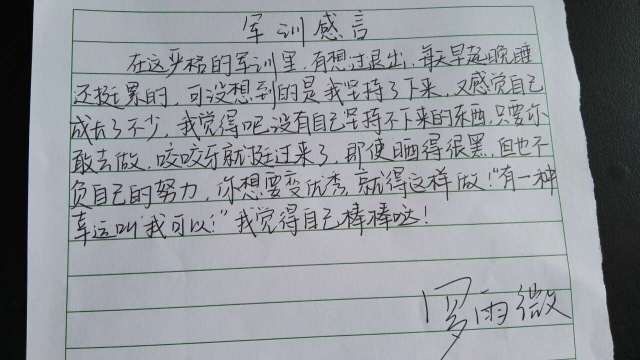 军训感言
在这严格的军训里，有想过退出，每天早起晚睡
还挺累的，可没想到的是我坚持了下来，又感觉自己
成长了不少，我觉得吧没有自己坚持不下来的东西，只要你
敢去做，咬咬牙就挺过来了，即使晒得很黑，但也不
负自己的努力，你想要变优秀，就得这样做！"有一种
幸运叫'我可以！'"我觉得自己棒棒哒！
罗雨微